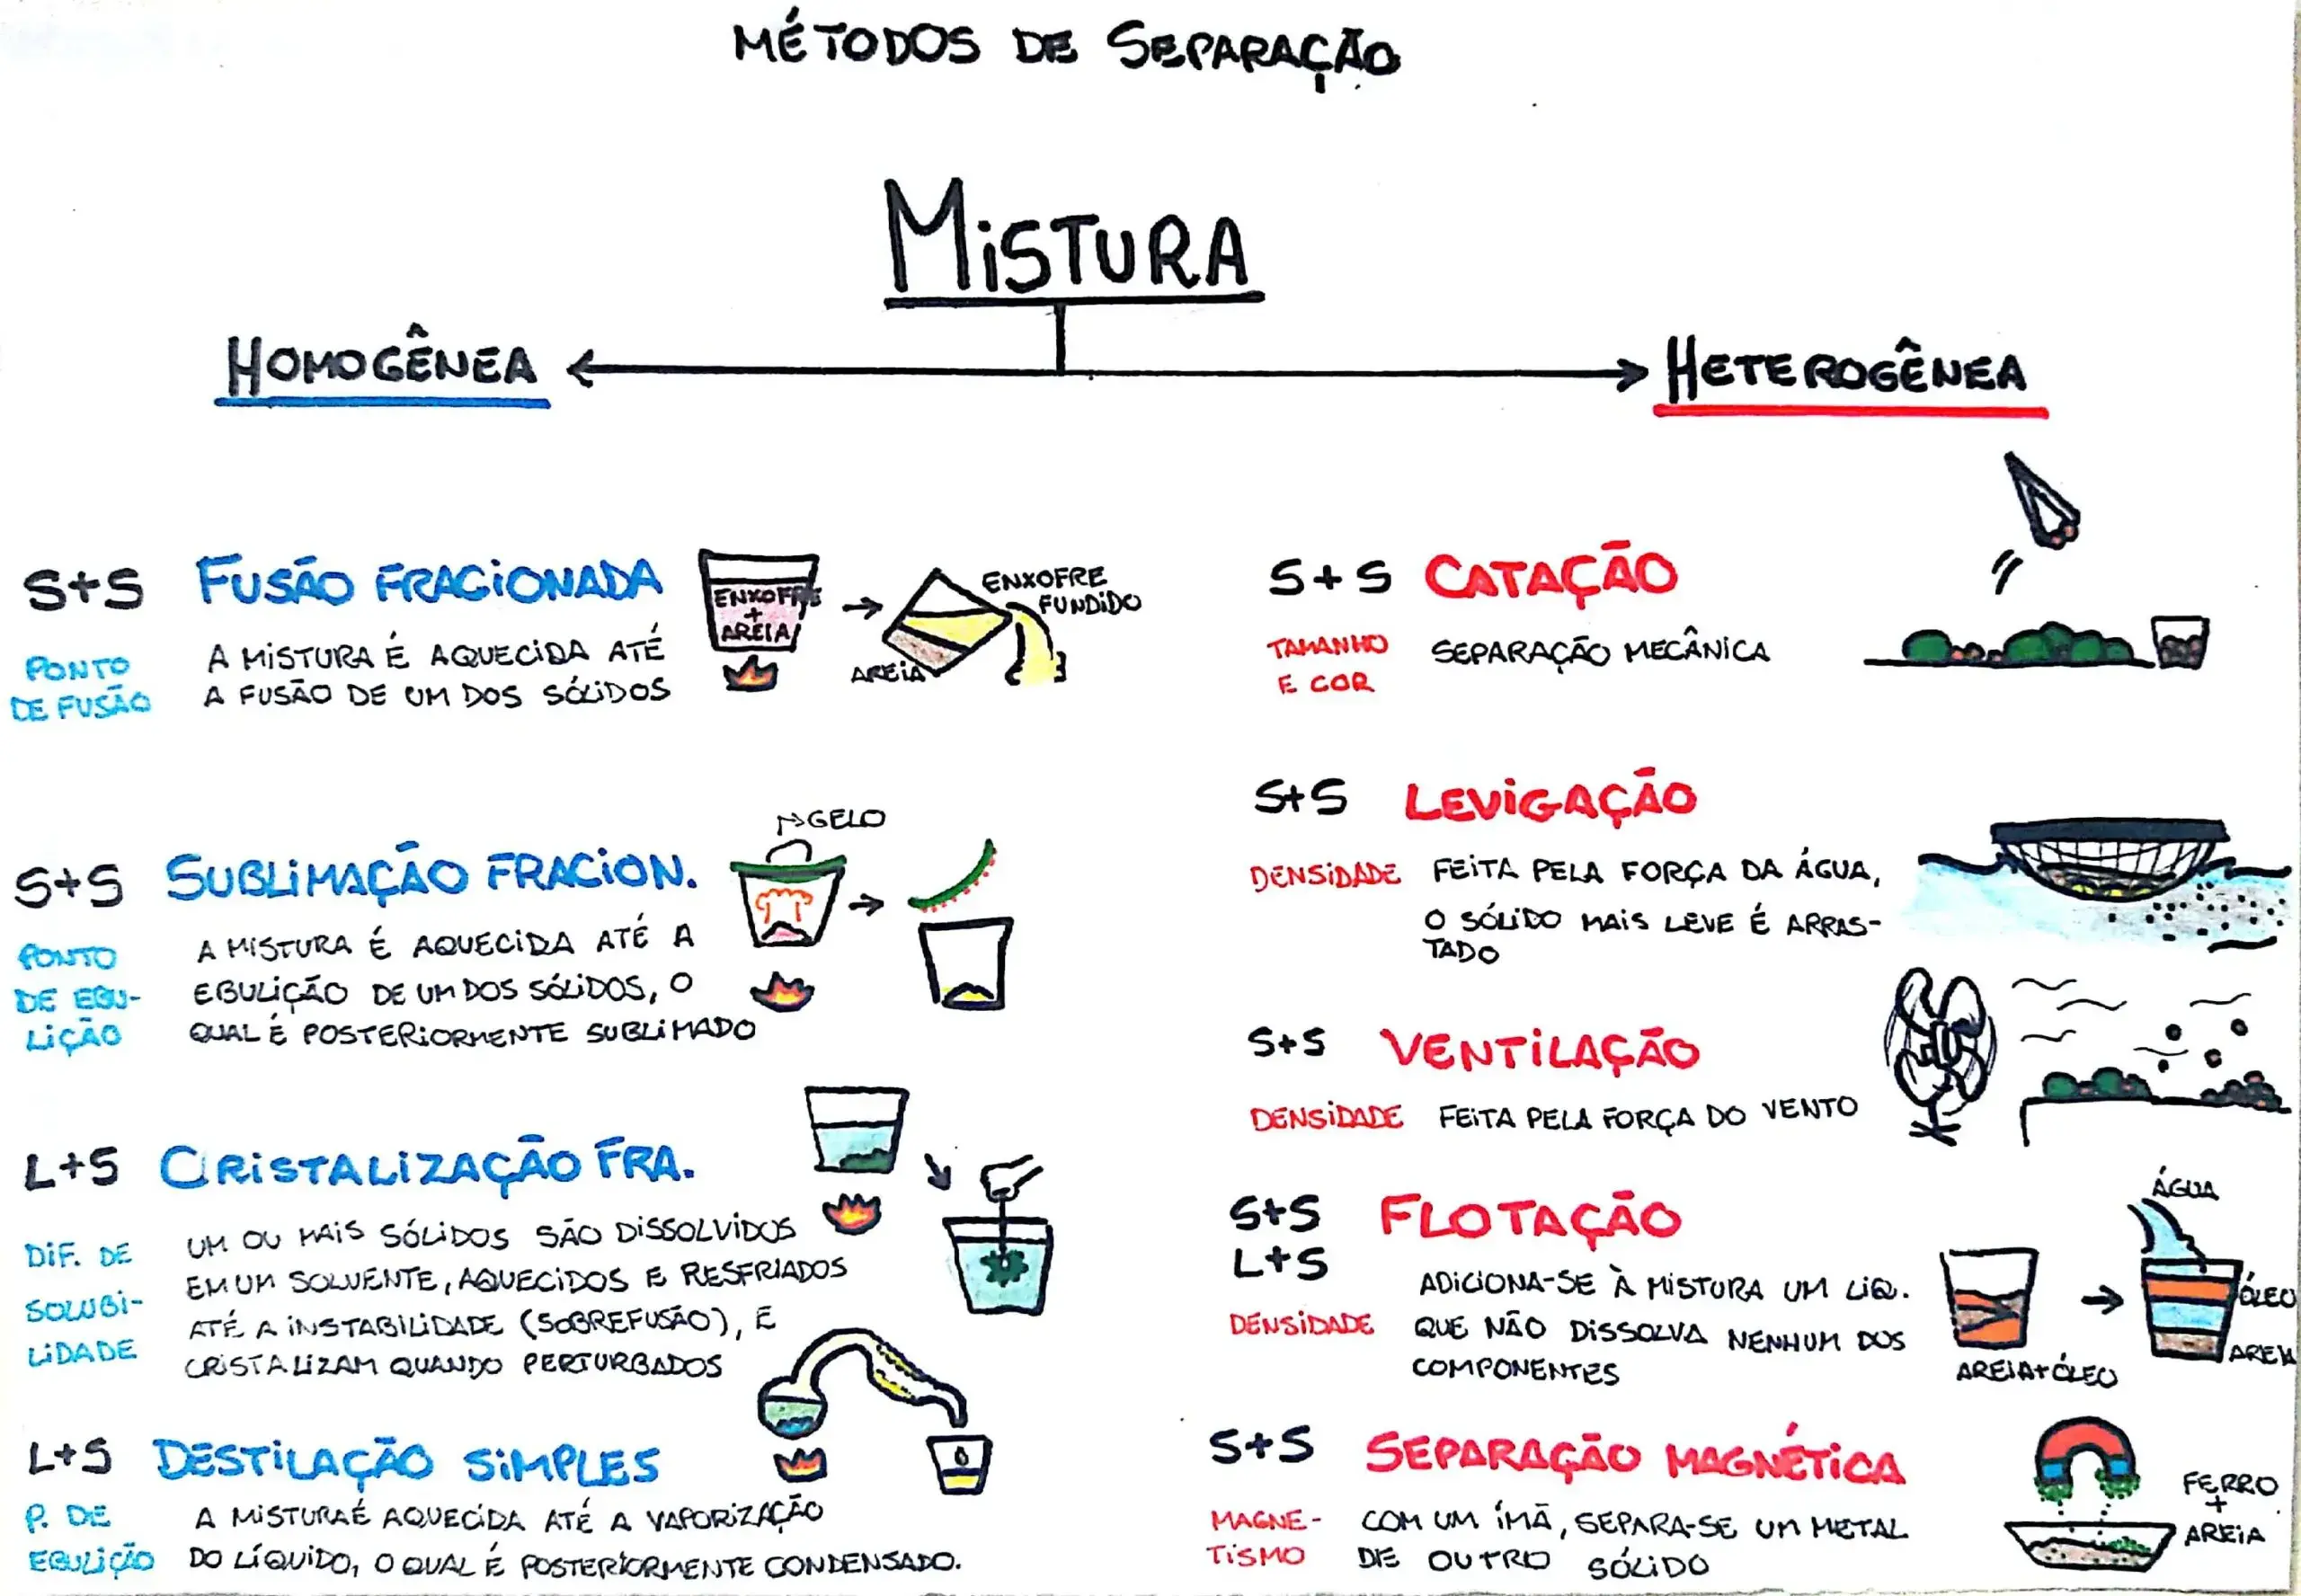 MÉTODOS DE SEPARAÇÃO
MISTURA
HOMOGÊNEA
HETEROGÊNEA
S+S FUSÃO FRACIONADA
PONTO
DE FUSÃO
A MISTURA É AQUECIDA ATÉ
A FUSÃO DE UM DOS SÓLIDOS
ENXOFRE
+
AREIA
ENXOFRE
FUNDIDO
AREIA
S+S SUBLIMAÇÃO FRACION.
PONTO
DE EBU-
LIÇÃO
A MISTURA É AQUECIDA ATÉ A
EBULIÇÃO DE UM DOS SÓLIDOS, O
QUAL É POSTERIORMENTE SUBLIMADO
GELO
L+S CRISTALIZAÇÃO FRA.
DIF. DE
SOLUBI-
LIDADE
UM OU MAIS SÓLIDOS SÃO DISSOLVIDOS
EM UM SOLVENTE, AQUECIDOS E RESFRIADOS
ATÉ A INSTABILIDADE (SOBREFUSÃO), E
CRISTALIZAM QUANDO PERTURBADOS
L+S DESTILAÇÃO SIMPLES
P. DE
EBULIÇÃO
A MISTURA É AQUECIDA ATÉ A VAPORIZAÇÃO
DO LÍQUIDO, O QUAL É POSTERIORMENTE CONDENSADO.
S+S CATAÇÃO
TAMANHO
E COR
SEPARAÇÃO MECÂNICA
S+S LEVIGAÇÃO
DENSIDADE
FEITA PELA FORÇA DA ÁGUA,
O SÓLIDO MAIS LEVE É ARRAS-
TADO
S+S VENTILAÇÃO
DENSIDADE
FEITA PELA FORÇA DO VENTO
S+S FLOTAÇÃO
L+S
DENSIDADE
ADICIONA-SE À MISTURA UM LIQ.
QUE NÃO DISSOLVA NENHUM DOS
COMPONENTES
ÁGUA
ÓLEO
AREIA
AREIA+ÓLEO
S+S SEPARAÇÃO MAGNÉTICA
MAGNE-
TISMO
COM UM ÍMÃ, SEPARA-SE UM METAL
DE OUTRO SÓLIDO
FERRO
+
AREIA